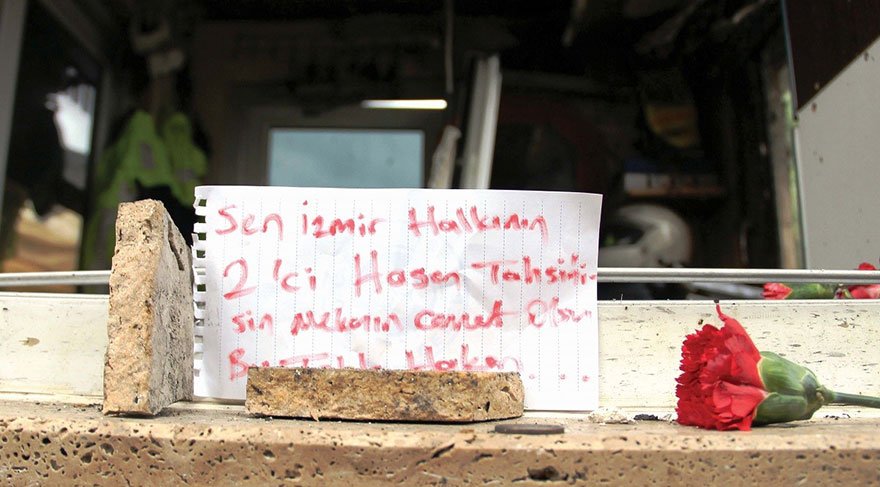 Sen İzmir Halkının
2'ci Hasan Tahsini-
sin Mekanın cennet Olsun
Hakim...